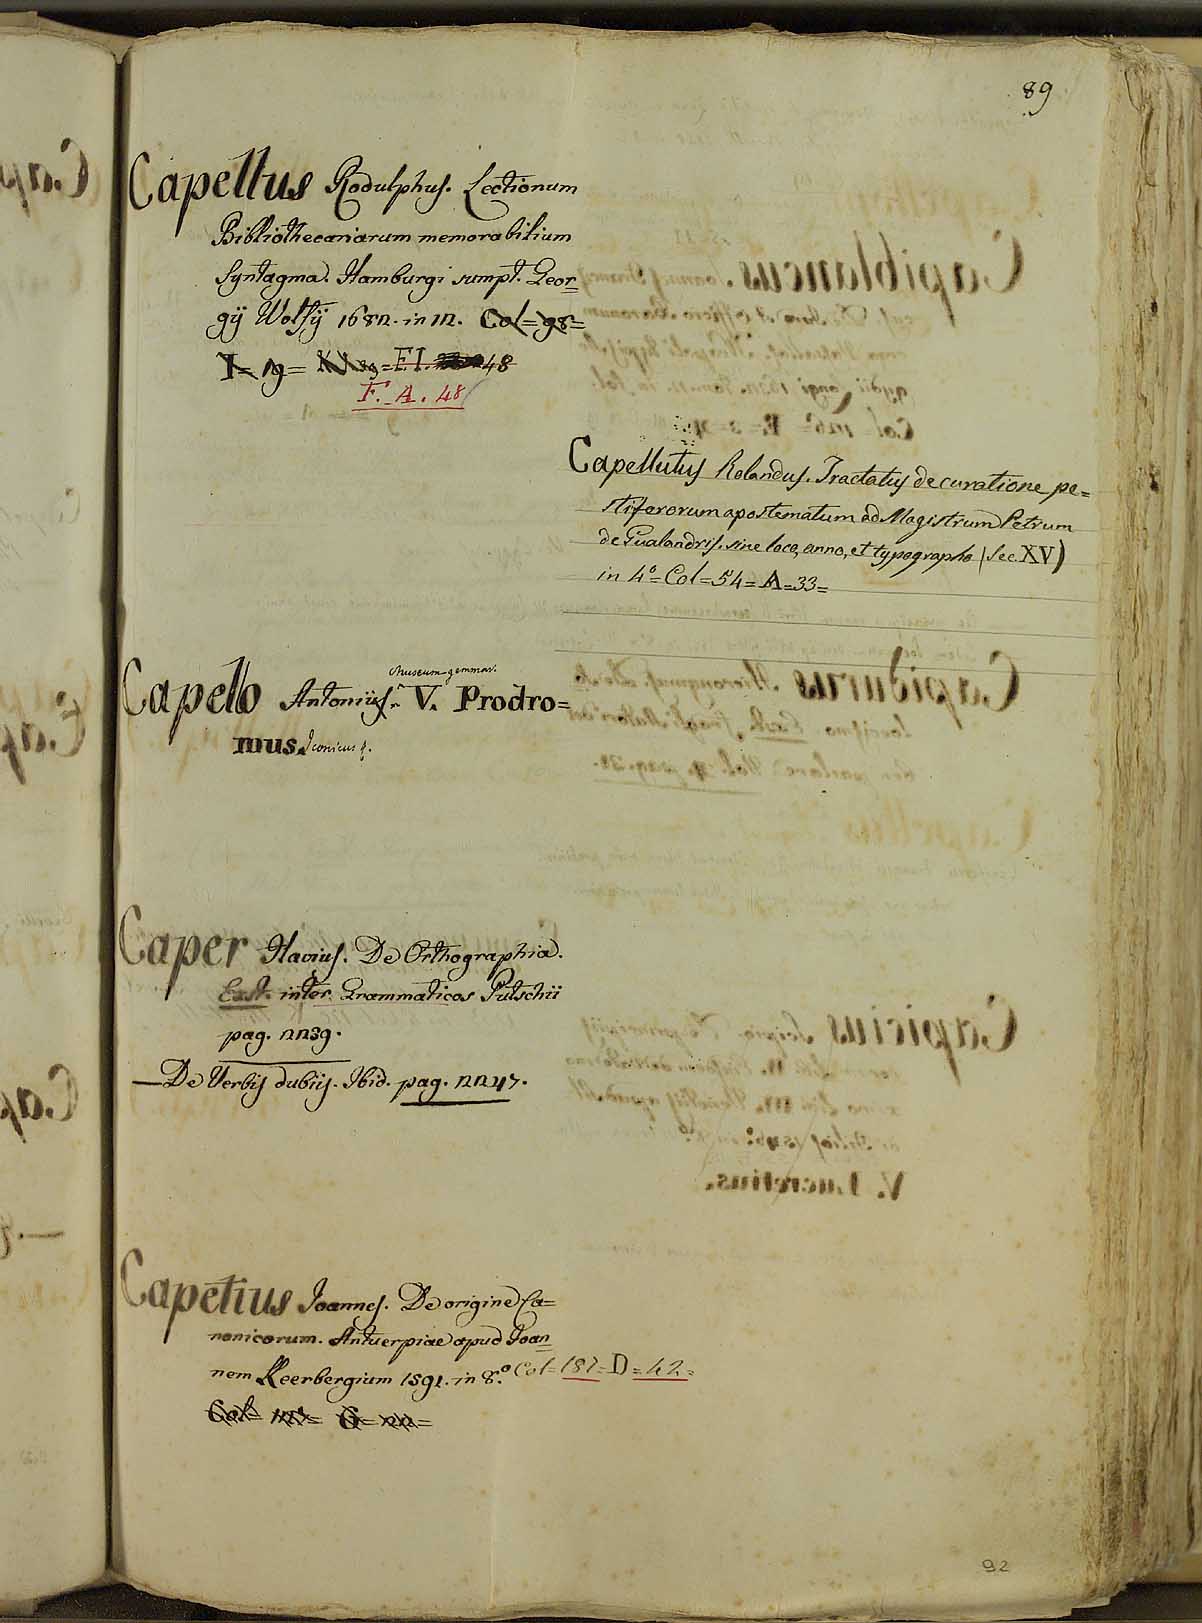 89
Capellus Rodulphus. Lectionum
Bibliothecariarum memorabilium
Syntagma. Hamburgi sumpt. Geor=
gij Wolfij 1682. in 12. Col=98=
I=19= =F.I. 48
F. A. 48
Capellutus Rolandus. Tractatus de curatione pe=
stiferorum apostematum ad Magistrum Petrum
de Gualandris. sine loco, anno, et typographo (Sec. XV)
in 4.º=Col=54=A=33=
Museum gemmar.
Capello Antonius. V. Prodro=
mus Iconicus &.
Caper Flavius. De Orthographia.
Ext. inter Grammaticos Putschii
pag. 2239.
—De Verbis dubiis. Ibid. pag. 2247.
Capetius Joannes. De origine Ca=
nonicorum. Antuerpiae apud Joan=
nem Keerbergium 1592. in 8.º Col=187=D=42=
Col= G=22=
92